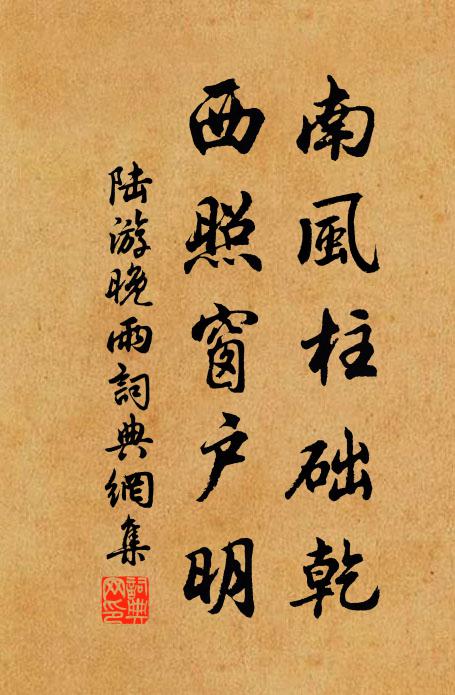 南風柱础乾
西照窗户明
陆游晚雨詞典網集
詞典網印